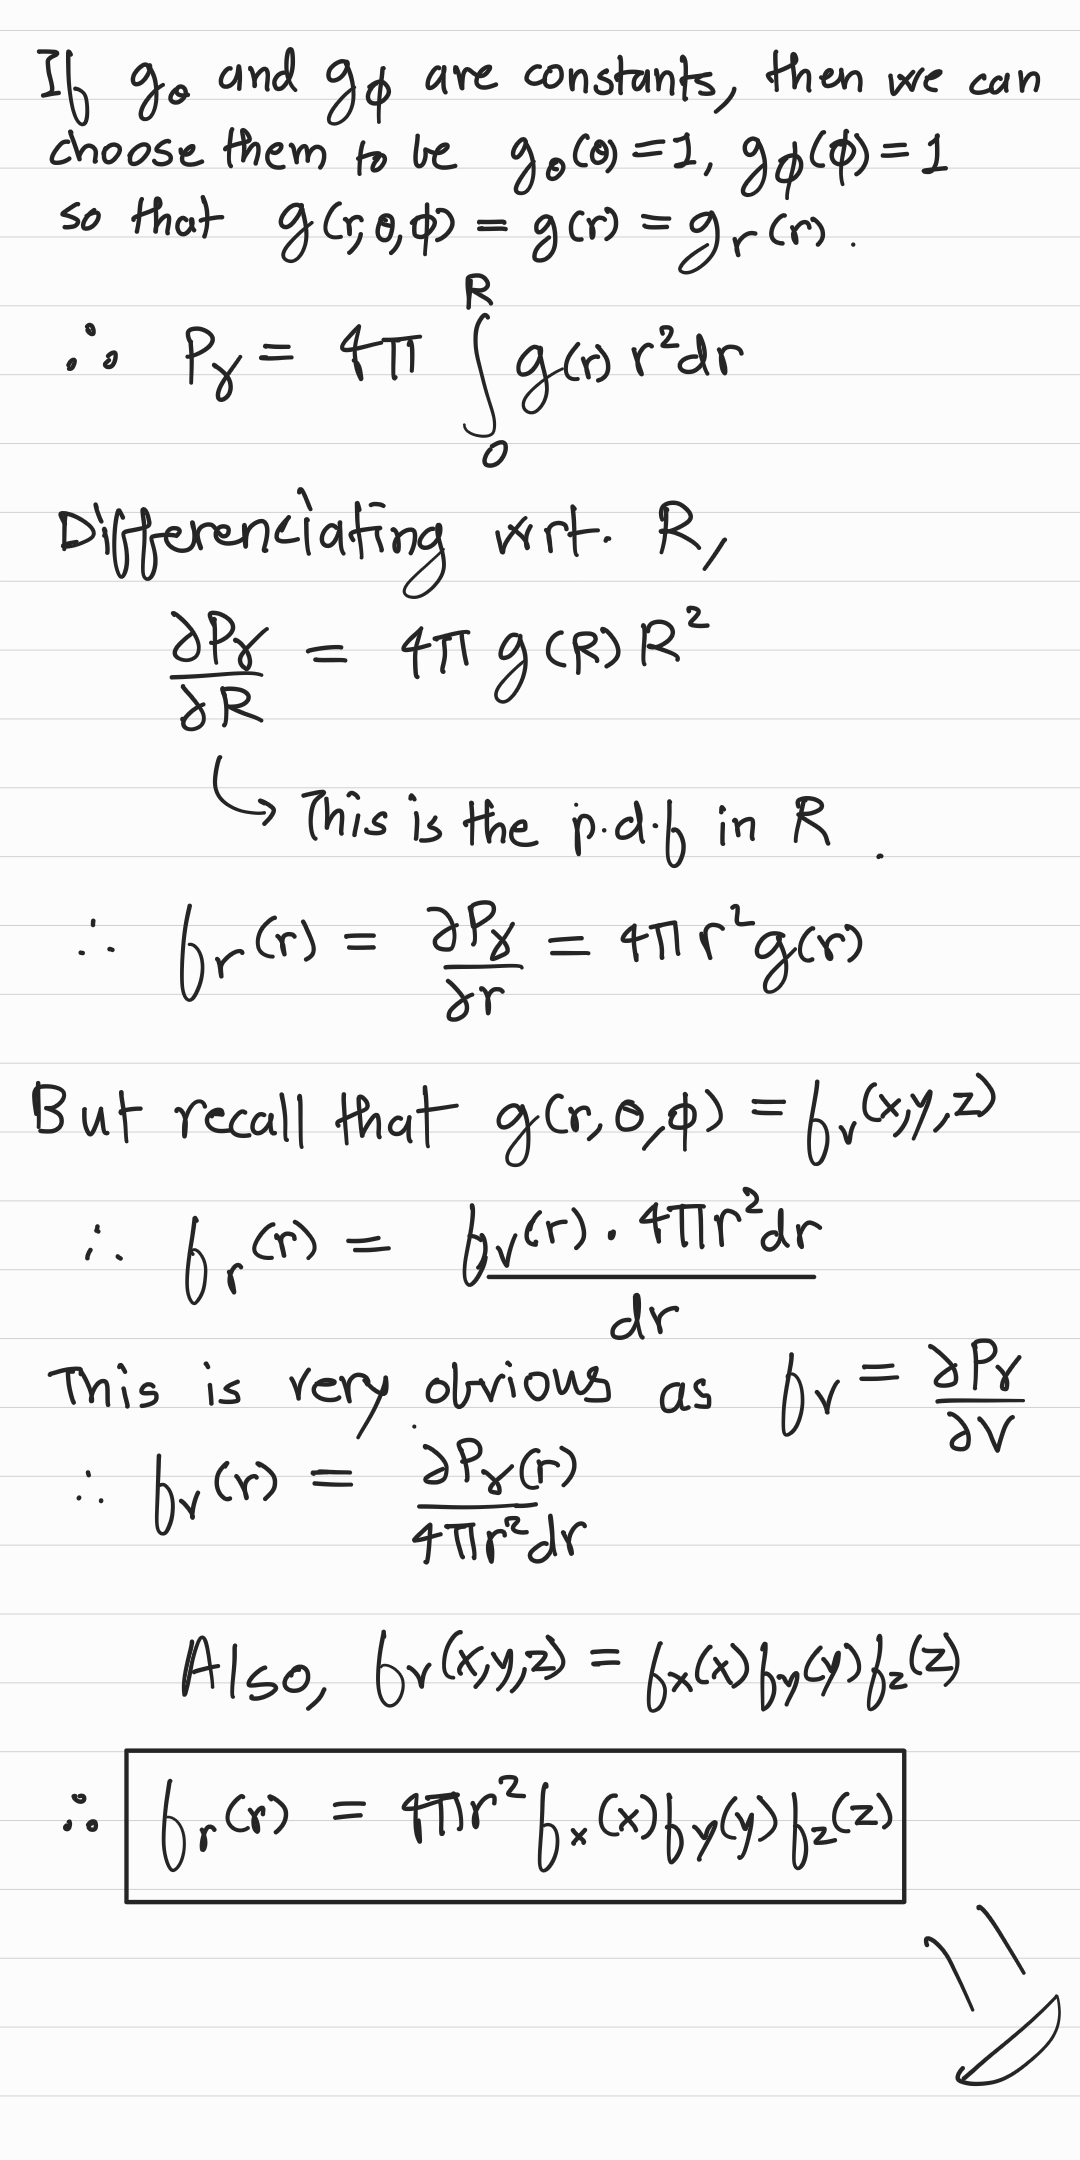 If g_θ and g_ϕ are constants, then we can
choose them to be g_θ(θ) = 1, g_ϕ(ϕ) = 1
so that g(r, θ, ϕ) = g(r) = g_r(r).
∴ P_γ = 4π ∫_0^R g(r) r² dr
Differenciating wrt. R,
∂P_γ/∂R = 4π g(R) R²
↳ This is the p.d.f in R.
∴ f_r(r) = ∂P_γ/∂r = 4π r² g(r)
But recall that g(r, θ, ϕ) = f_v(x,y,z)
∴ f_r(r) = f_v(r) · 4πr²dr / dr
This is very obvious as f_v = ∂P_γ/∂V
∴ f_v(r) = ∂P_γ(r) / 4πr²dr
Also, f_v(x,y,z) = f_x(x) f_y(y) f_z(z)
∴ f_r(r) = 4πr² f_x(x) f_y(y) f_z(z)